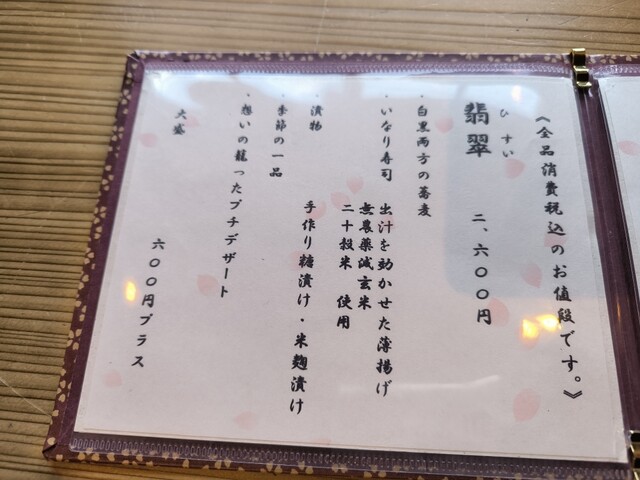 《全品消費税込のお値段です。》
ひすい
翡翠 二、六〇〇円
・白黒両方の蕎麦
・いなり寿司 出汁を効かせた薄揚げ
無農薬減玄米
二十穀米 使用
・漬物 手作り糠漬け・米麹漬け
・季節の一品
・想いの籠ったプチデザート
大盛 六〇〇円プラス